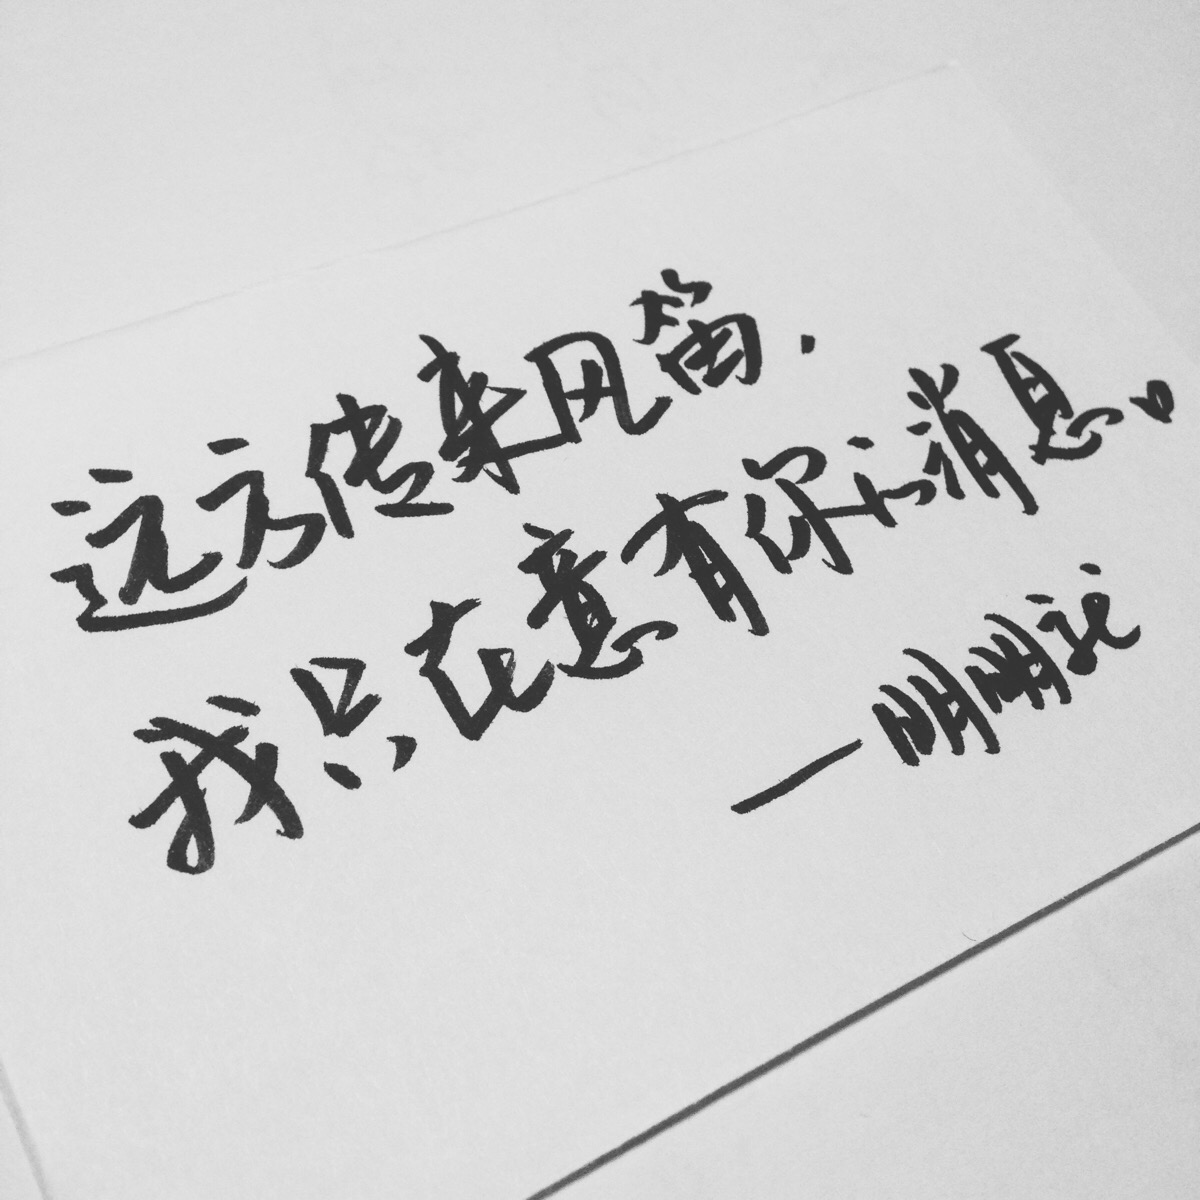 远方传来风笛.
我只在意有你的消息。
—明明说